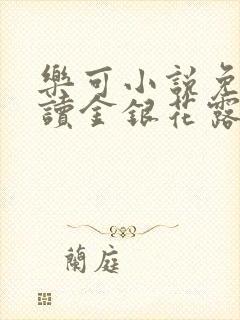 樂可小說免
讀金銀花露
蘭庭